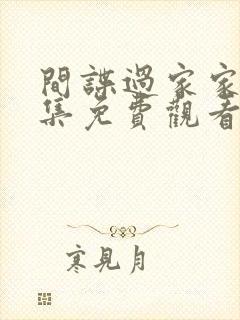 間諜過家家
集免費觀看
寒見月